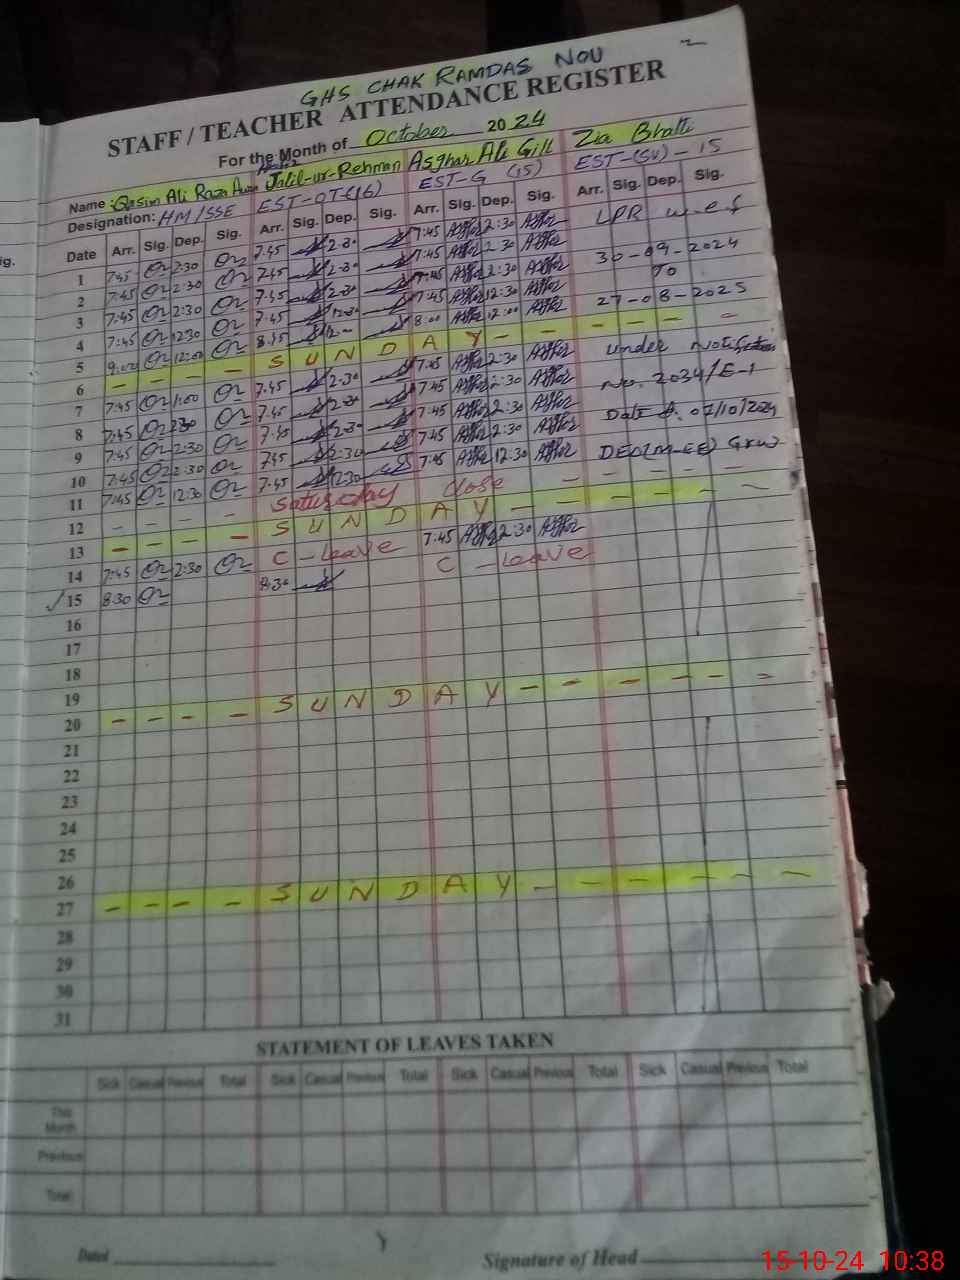 GHS CHAK RAMDAS NOU
STAFF / TEACHER ATTENDANCE REGISTER
For the Month of October 2024
Name : Qasim Ali Raza Jalil-ur-Rehman Asghar Ali Gill Zia Bhatti
Designation: HM/SSE EST-OT-(16) EST-G (15) EST-(SV)-15
Date Arr. Sig. Dep. Sig. Arr. Sig. Dep. Sig. Arr. Sig. Dep. Sig. Arr. Sig. Dep. Sig.
1 7:45 2:30 7:45 2:30 7:45 2:30 LPR w.e.f
2 7:45 2:30 7:45 2:30 7:45 2:30 30-09-2024
3 7:45 2:30 7:45 2:30 7:45 2:30 To
4 7:45 12:30 7:45 12:30 7:45 12:30 27-08-2025
5 9:00 12:00 8:15 12:00 8:00 12:00
6 - - - - S U N D A Y - - - - - -
7 7:45 1:00 7:45 2:30 7:45 2:30 under Notification
8 7:45 2:30 7:45 2:30 7:45 2:30 No. 2034/E-1
9 7:45 2:30 7:45 2:30 7:45 2:30 Dated. 07/10/2024
10 7:45 2:30 7:45 2:30 7:45 2:30
11 7:45 12:30 7:45 12:30 7:45 12:30 DEO(M-EE) Grw
12 - - - - Saturday close - - - - -
13 - - - - S U N D A Y - - - - - -
14 7:45 2:30 C - Leave 7:45 2:30
15 8:30 8:30 C - Leave
16
17
18
19
20 - - - - S U N D A Y - - - - - -
21
22
23
24
25
26
27 - - - - S U N D A Y - - - - - -
28
29
30
31
STATEMENT OF LEAVES TAKEN
Sick Casual Previous Total Sick Casual Previous Total Sick Casual Previous Total Sick Casual Previous Total
This Month
Previous
Total
Dated
Signature of Head
15-10-24 10:38